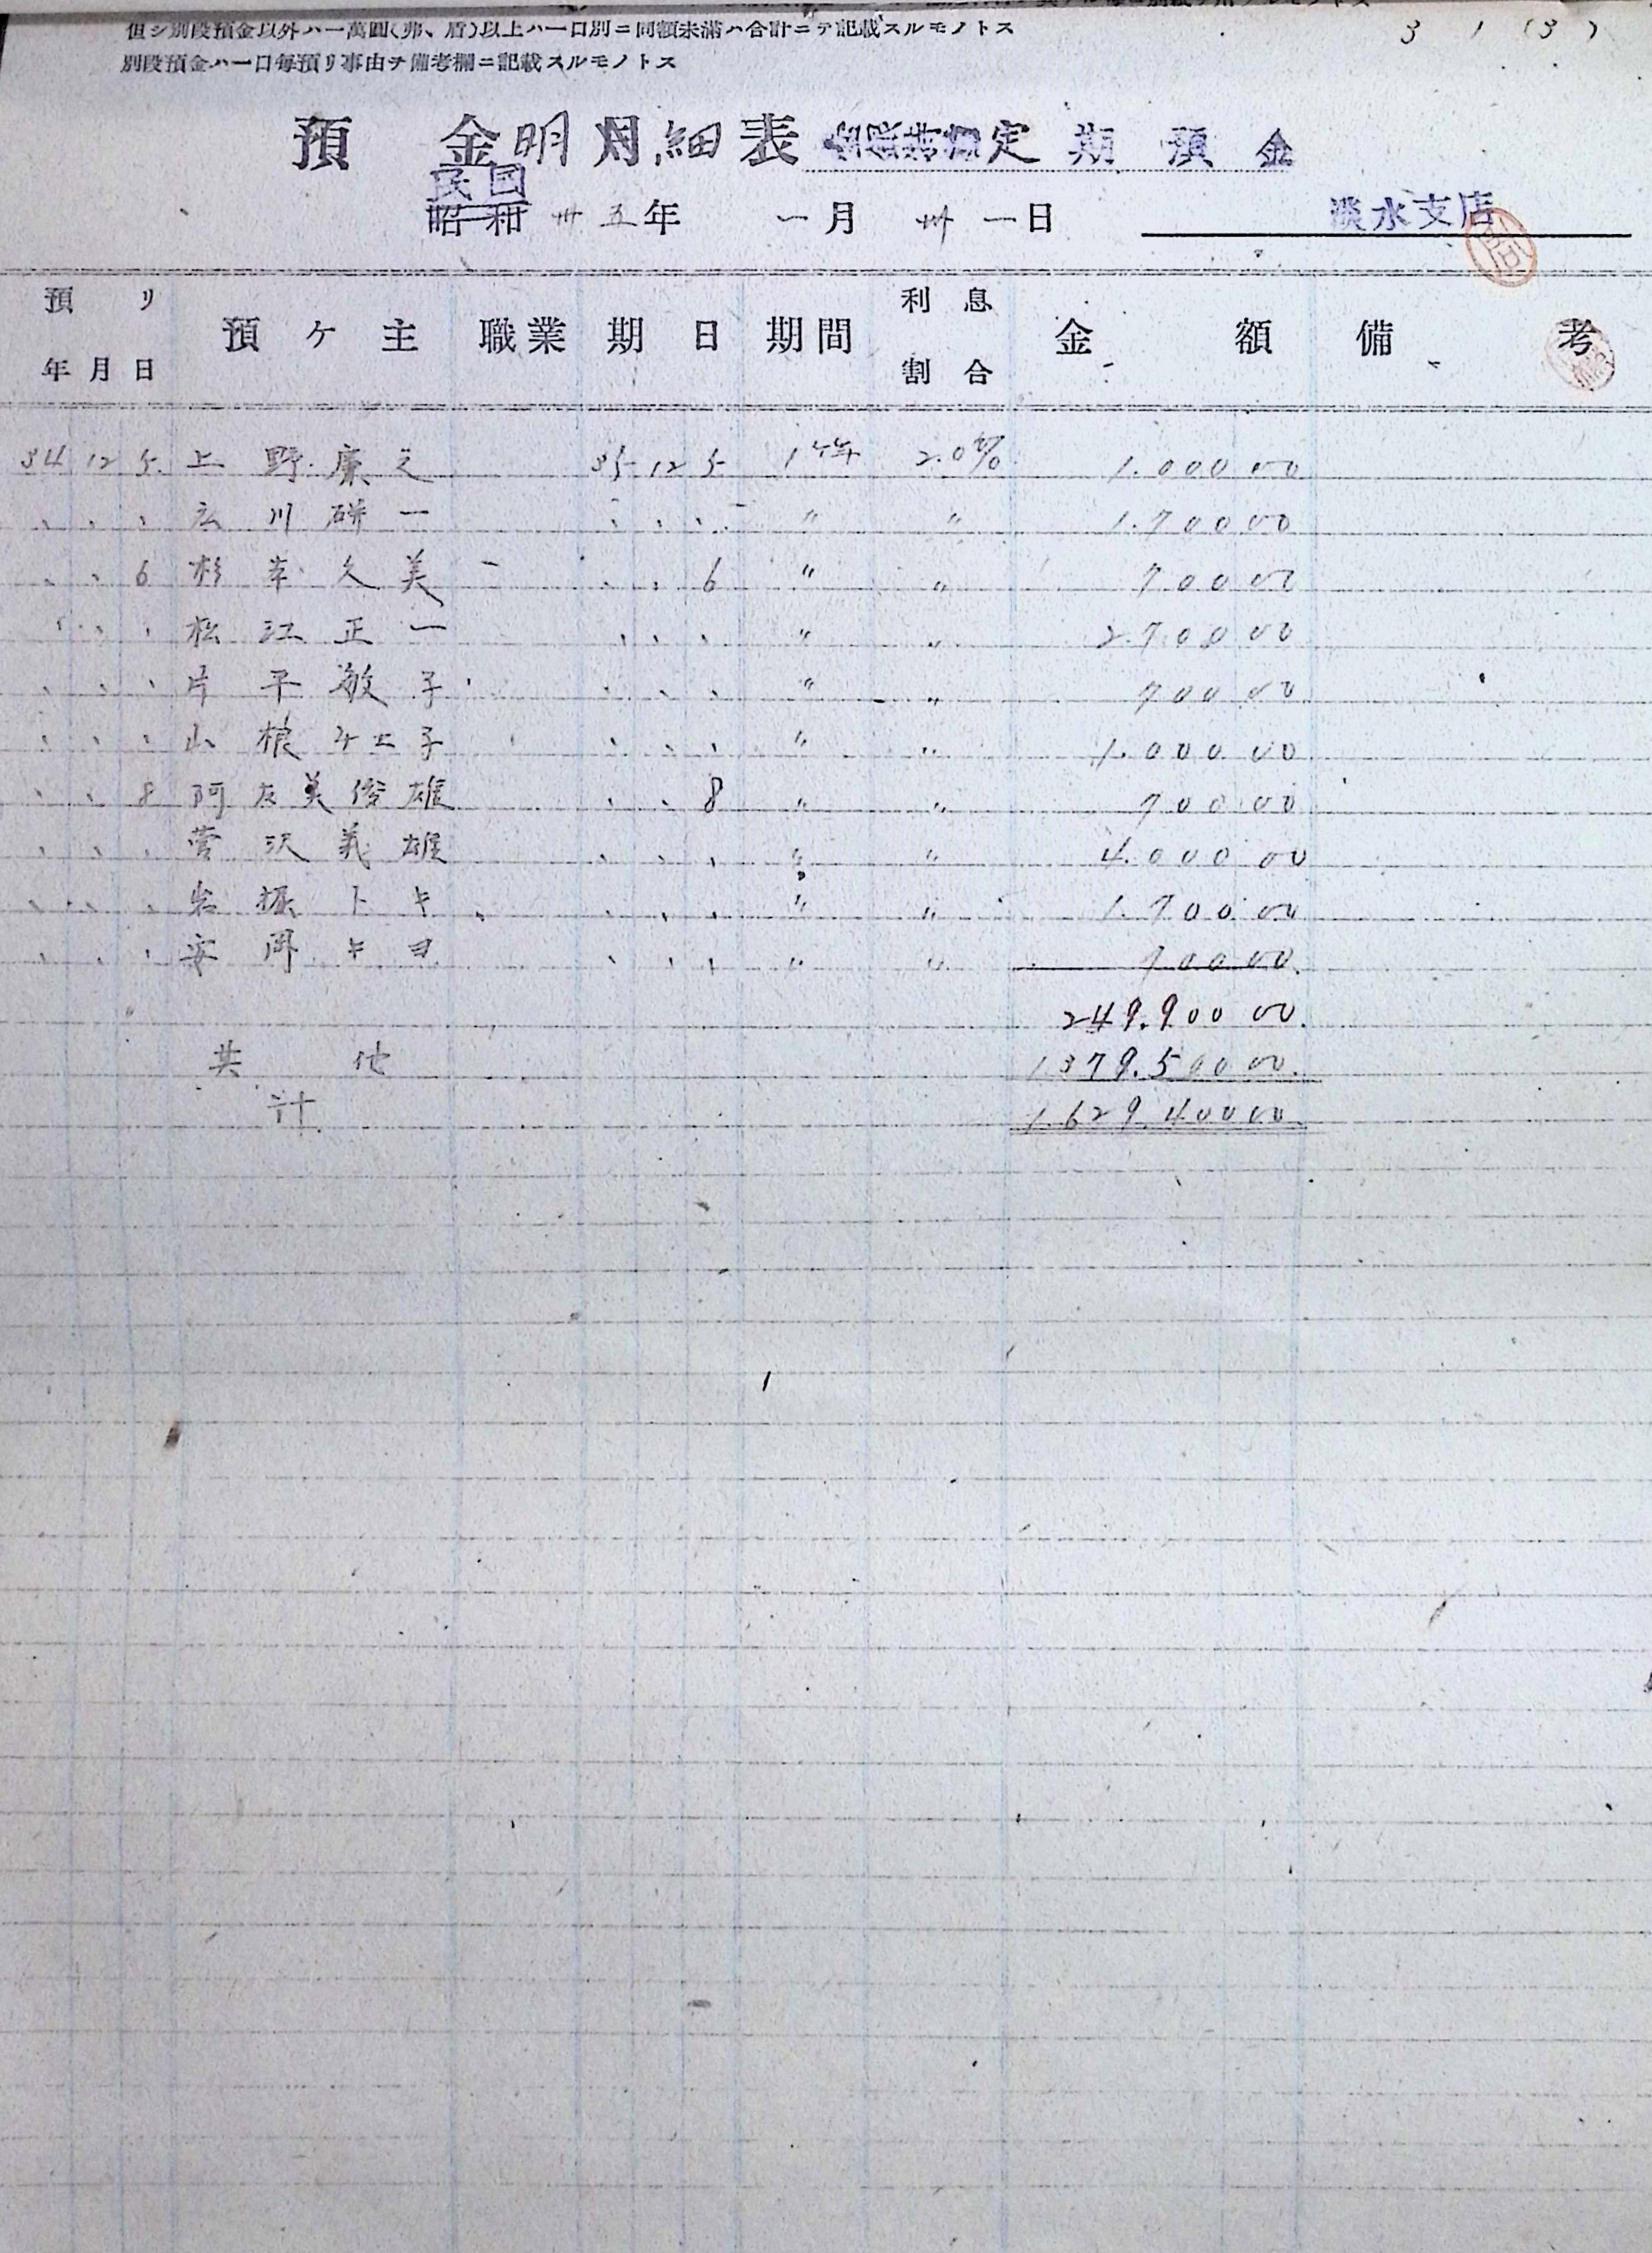 但シ別段預金以外ハ一萬圓(弗、盾)以上ハ一口別ニ同額未滿ハ合計ニテ記載スルモノトス
3 1 (3)
別段預金ハ一口每預リ事由ヲ備考欄ニ記載スルモノトス
預金明細表 定期預金
民国
昭和 卅五年 一月 卅一日 淡水支店
預リ年月日 預ケ主 職業 期日 期間 利息割合 金額 備考
34 12 5 上野廉之 35 12 5 1ヶ年 2.0% 1.000 00
、 、 、 広川研一 、 、 、 〃 〃 1.700 00
、 、 6 杉 久美 、 、 6 〃 〃 700 00
、 、 、 松江正一 、 、 、 〃 〃 2.700 00
、 、 、 片平敏子 、 、 、 〃 〃 700 00
、 、 、 山根 子 、 、 、 〃 〃 1.000 00
、 、 8 阿 美俊雄 、 、 8 〃 〃 700 00
、 、 、 菅沢義雄 、 、 、 〃 〃 4.000 00
、 、 、 岩振トキ 、 、 、 〃 〃 1.700 00
、 、 、 安岡キヨ 、 、 、 〃 〃 700 00
249.900 00
其他 1379.500 00
計 1.629.400 00